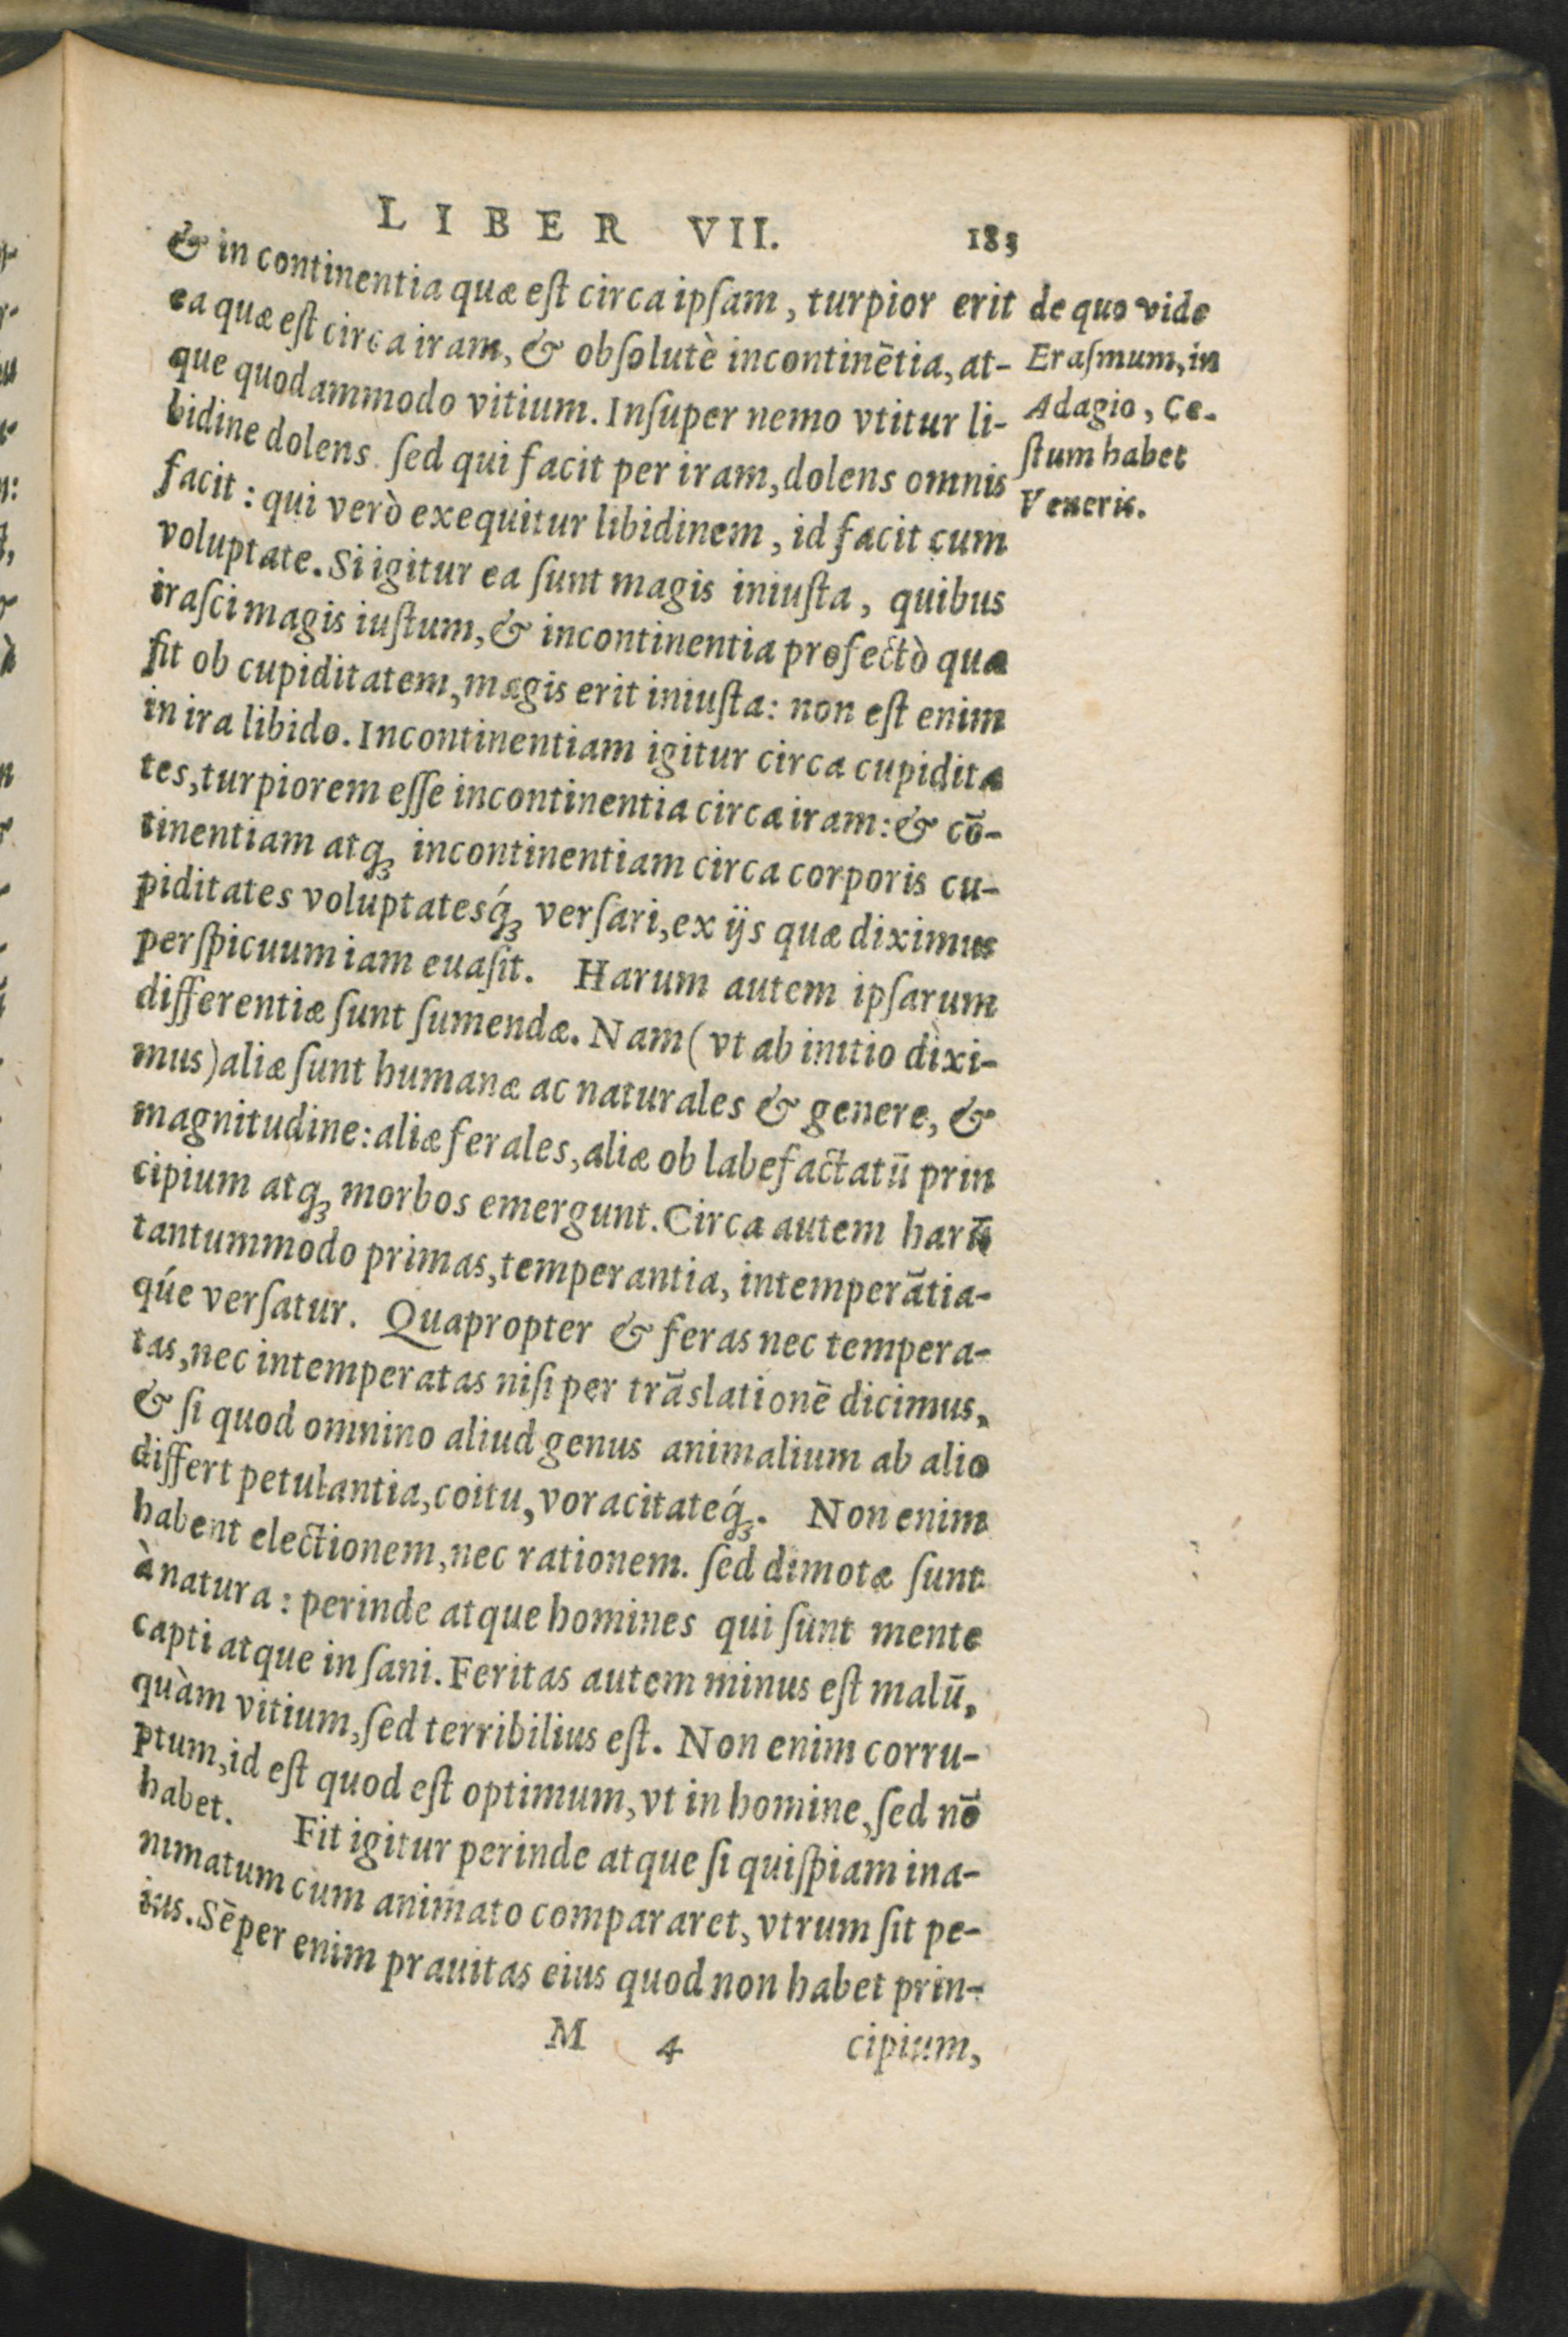 LIBER VII. 183
& in continentia quæ eſt circa ipſam, turpior erit
ea quæ eſt circa iram, & obſolutè incontinētia, at-
que quodammodo vitium. Inſuper nemo vtitur li-
bidine dolens ſed qui facit per iram, dolens omnis
facit: qui verò exequitur libidinem, id facit cum
voluptate. Si igitur ea ſunt magis iniuſta, quibus
iraſci magis iuſtum, & incontinentia profectò quæ
fit ob cupiditatem, magis erit iniuſta: non eſt enim
in ira libido. Incontinentiam igitur circa cupidita
tes, turpiorem eſſe incontinentia circa iram: & cō-
tinentiam atqꝫ incontinentiam circa corporis cu-
piditates voluptatesq́ꝫ verſari, ex ijs quæ diximus
perſpicuum iam euaſit. Harum autem ipſarum
differentiæ ſunt ſumendæ. Nam (vt ab initio dixi-
mus) aliæ ſunt humanæ ac naturales & genere, &
magnitudine: aliæ ferales, aliæ ob labefactatū prin
cipium atqꝫ morbos emergunt. Circa autem harū
tantummodo primas, temperantia, intemperātia-
q́ue verſatur. Quapropter & feras nec tempera-
tas, nec intemperatas niſi per trāslationē dicimus,
& ſi quod omnino aliud genus animalium ab alio
differt petulantia, coitu, voracitateq́ꝫ. Non enim
habent electionem, nec rationem. ſed dimotæ ſunt
à natura: perinde atque homines qui ſunt mente
capti atque inſani. Feritas autem minus eſt malū,
quàm vitium, ſed terribilius eſt. Non enim corru-
ptum, id eſt quod eſt optimum, vt in homine, ſed nō
habet. Fit igitur perinde atque ſi quiſpiam ina-
nimatum cum animato compararet, vtrum ſit pe-
ius. Sēper enim prauitas eius quod non habet prin-
M 4 cipium,
de quo vide
Eraſmum, in
Adagio, Ce-
ſtum habet
Veneris.